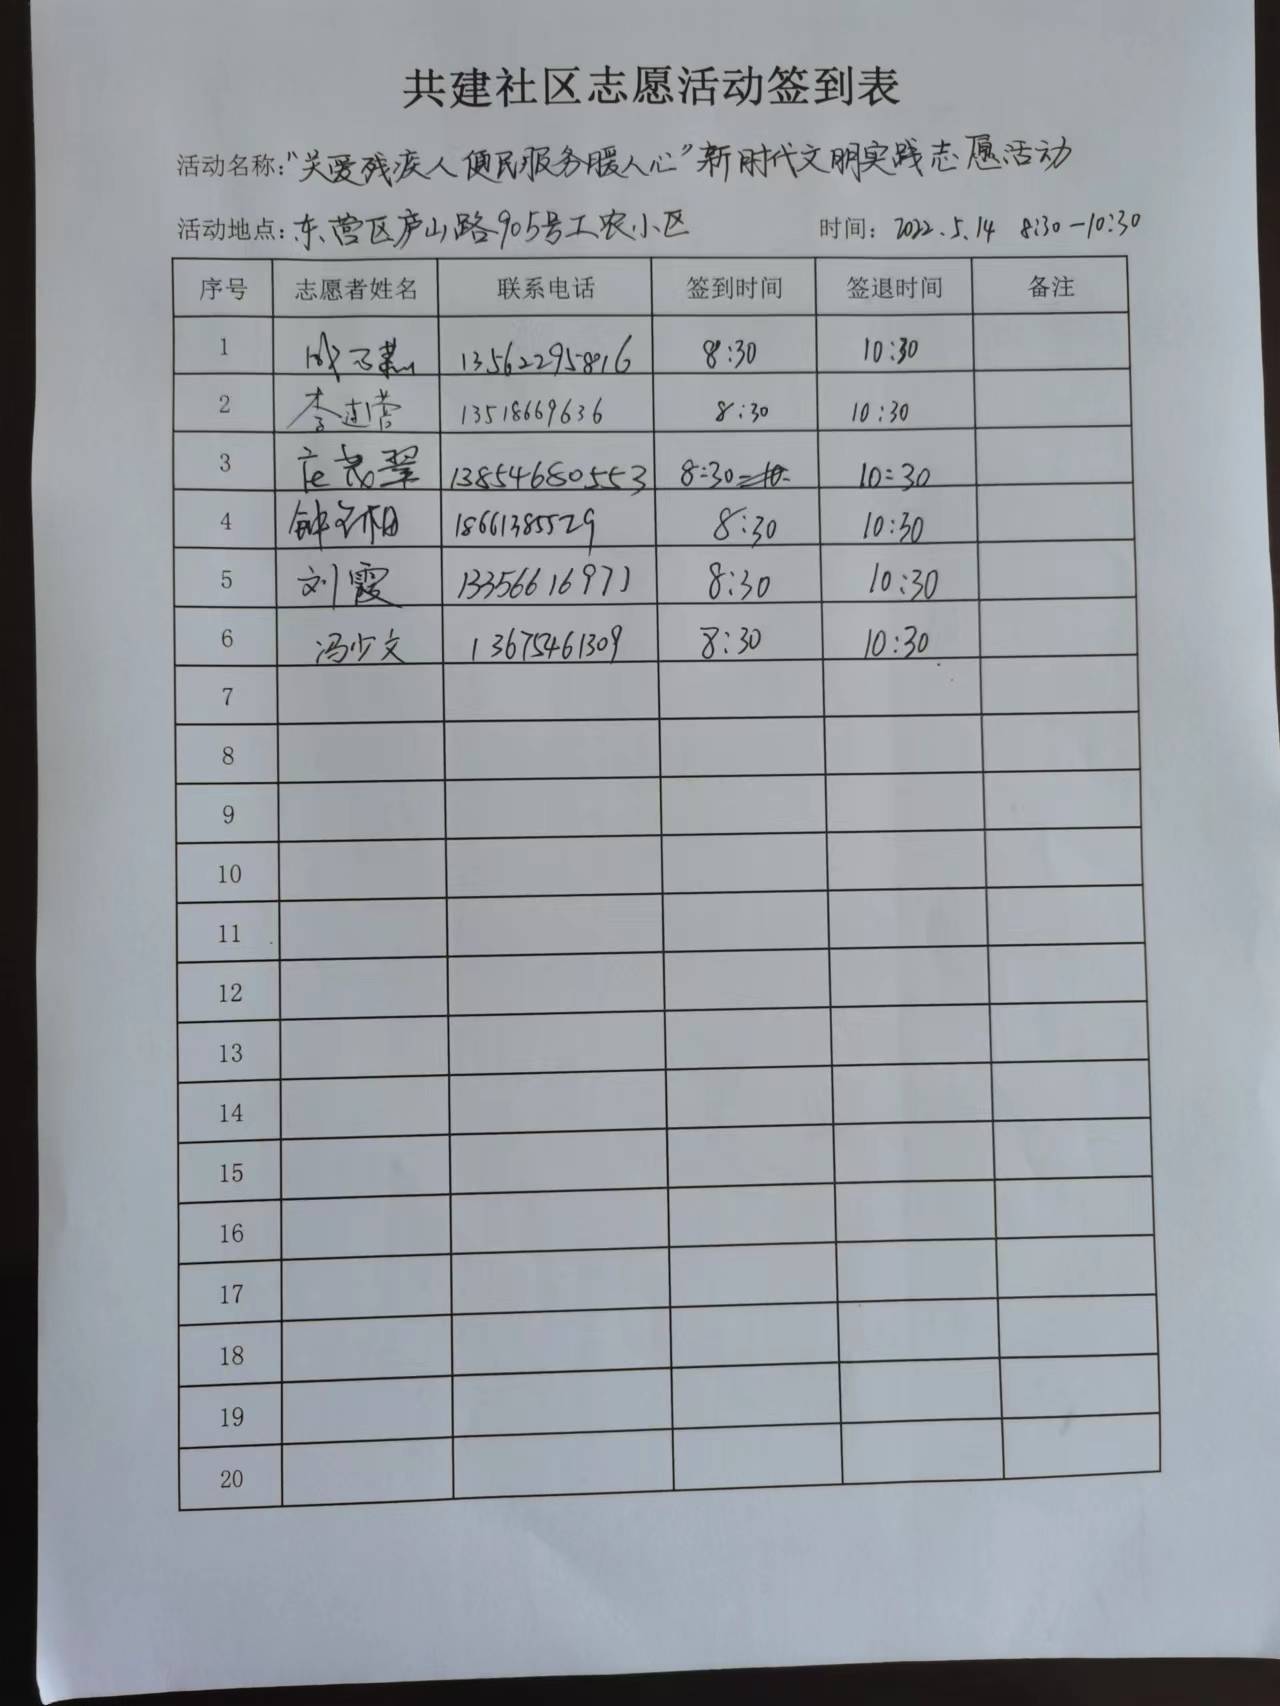 共建社区志愿活动签到表
活动名称：“关爱残疾人 便民服务暖人心”新时代文明实践志愿活动
活动地点：东营区庐山路905号工农小区 时间：2022.5.14 8:30-10:30
序号 志愿者姓名 联系电话 签到时间 签退时间 备注
1 13562295816 8:30 10:30
2 李连营 13518669636 8:30 10:30
3 13854680553 8:30 10:30
4 18661385529 8:30 10:30
5 刘霞 13356616971 8:30 10:30
6 冯少文 13675461309 8:30 10:30
7
8
9
10
11
12
13
14
15
16
17
18
19
20